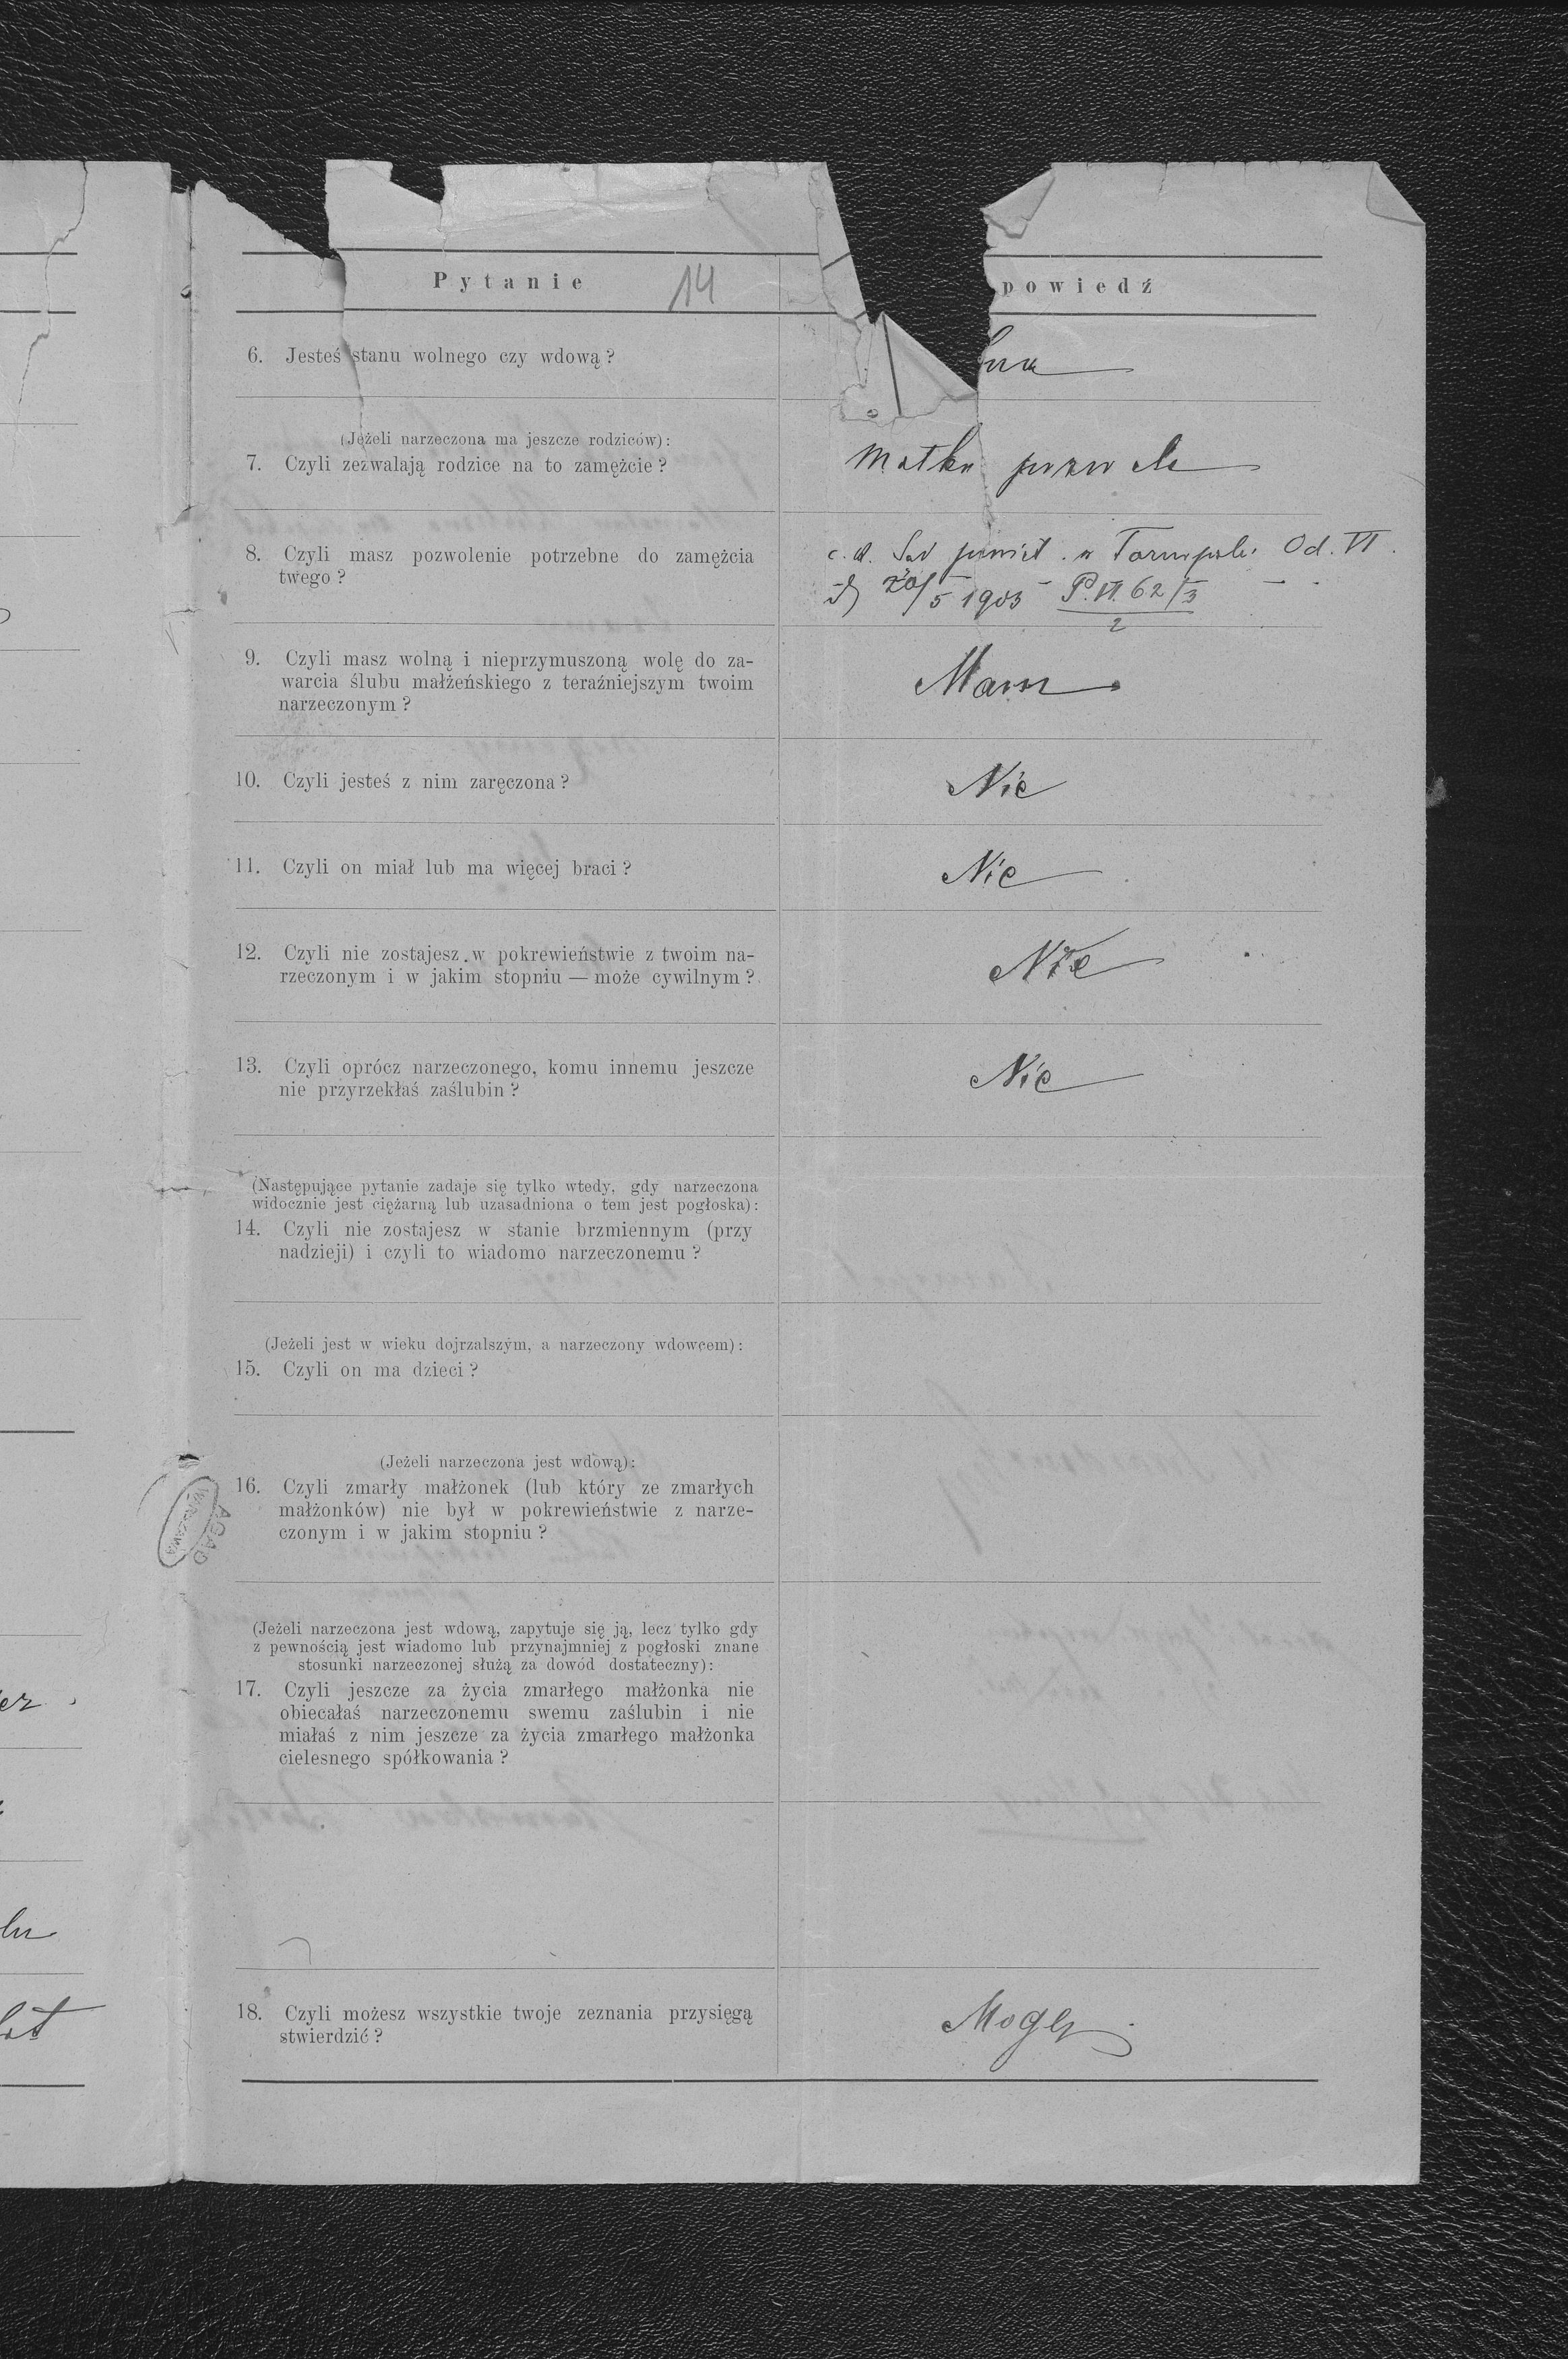 Pytanie
14
powiedź
6. Jesteś stanu wolnego czy wdową?
(Jeżeli narzeczona ma jeszcze rodziców):
7. Czyli zezwalają rodzice na to zamężcie?
Matka pozwala
8. Czyli masz pozwolenie potrzebne do zamężcia
twego?
c. k. Sąd powiat. w Tarnopolu Od. VI.
20/5 1903 P. VI. 62/3
2
9. Czyli masz wolną i nieprzymuszoną wolę do za-
warcia ślubu małżeńskiego z teraźniejszym twoim
narzeczonym?
Mam
10. Czyli jesteś z nim zaręczona?
Nie
11. Czyli on miał lub ma więcej braci?
Nie
12. Czyli nie zostajesz w pokrewieństwie z twoim na-
rzeczonym i w jakim stopniu — może cywilnym?
Nie
13. Czyli oprócz narzeczonego, komu innemu jeszcze
nie przyrzekłaś zaślubin?
Nie
(Następujące pytanie zadaje się tylko wtedy, gdy narzeczona
widocznie jest ciężarną lub uzasadniona o tem jest pogłoska):
14. Czyli nie zostajesz w stanie brzmiennym (przy
nadzieji) i czyli to wiadomo narzeczonemu?
(Jeżeli jest w wieku dojrzalszym, a narzeczony wdowcem):
15. Czyli on ma dzieci?
(Jeżeli narzeczona jest wdową):
16. Czyli zmarły małżonek (lub który ze zmarłych
małżonków) nie był w pokrewieństwie z narze-
czonym i w jakim stopniu?
AGAD
WARSZAWA
(Jeżeli narzeczona jest wdową, zapytuje się ją, lecz tylko gdy
z pewnością jest wiadomo lub przynajmniej z pogłoski znane
stosunki narzeczonej służą za dowód dostateczny):
17. Czyli jeszcze za życia zmarłego małżonka nie
obiecałaś narzeczonemu swemu zaślubin i nie
miałaś z nim jeszcze za życia zmarłego małżonka
cielesnego spółkowania?
18. Czyli możesz wszystkie twoje zeznania przysięgą
stwierdzić?
Mogę